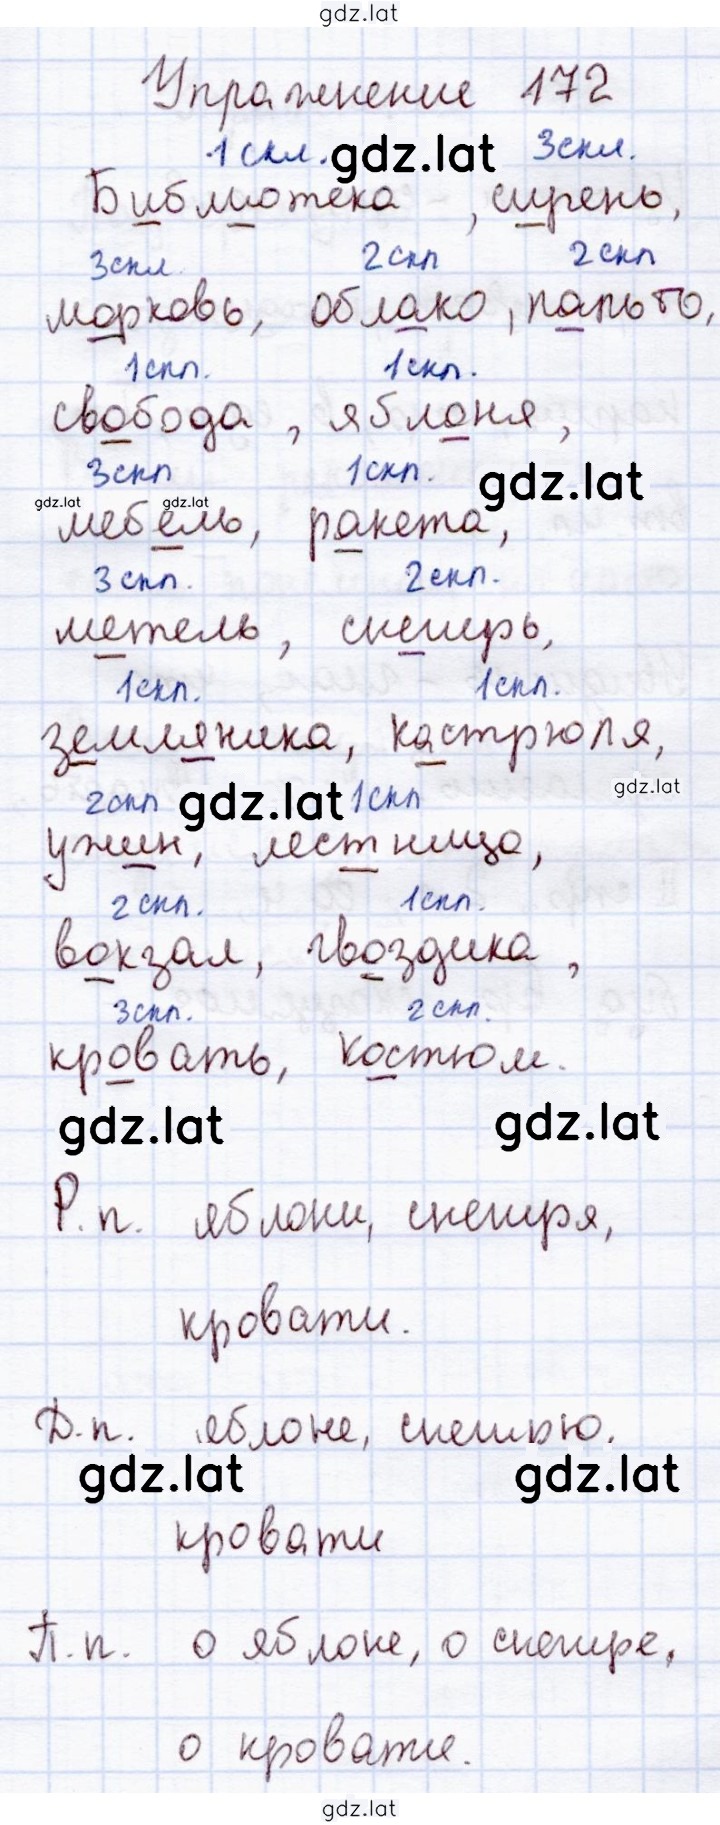 gdz.lat
Упражнение 172
1 скл. gdz.lat 3 скл.
Библиотека, сирень,
3 скл. 2 скл 2 скл
морковь, облако, пальто,
1 скл. 1 скл.
свобода, яблоня,
3 скл 1 скл. gdz.lat
gdz.lat gdz.lat
мебель, ракета,
3 скл. 2 скл.
метель, снегирь,
1 скл. 1 скл.
земляника, кастрюля,
gdz.lat
2 скл gdz.lat 1 скл
ужин, лестница,
2 скл. 1 скл.
вокзал, гвоздика,
3 скл. 2 скл.
кровать, костюм.
gdz.lat gdz.lat
Р.п. яблони, снегиря,
кровати.
Д.п. яблоне, снегирю.
gdz.lat gdz.lat
кровати
П.п. о яблоне, о снегире,
о кровати.
gdz.lat